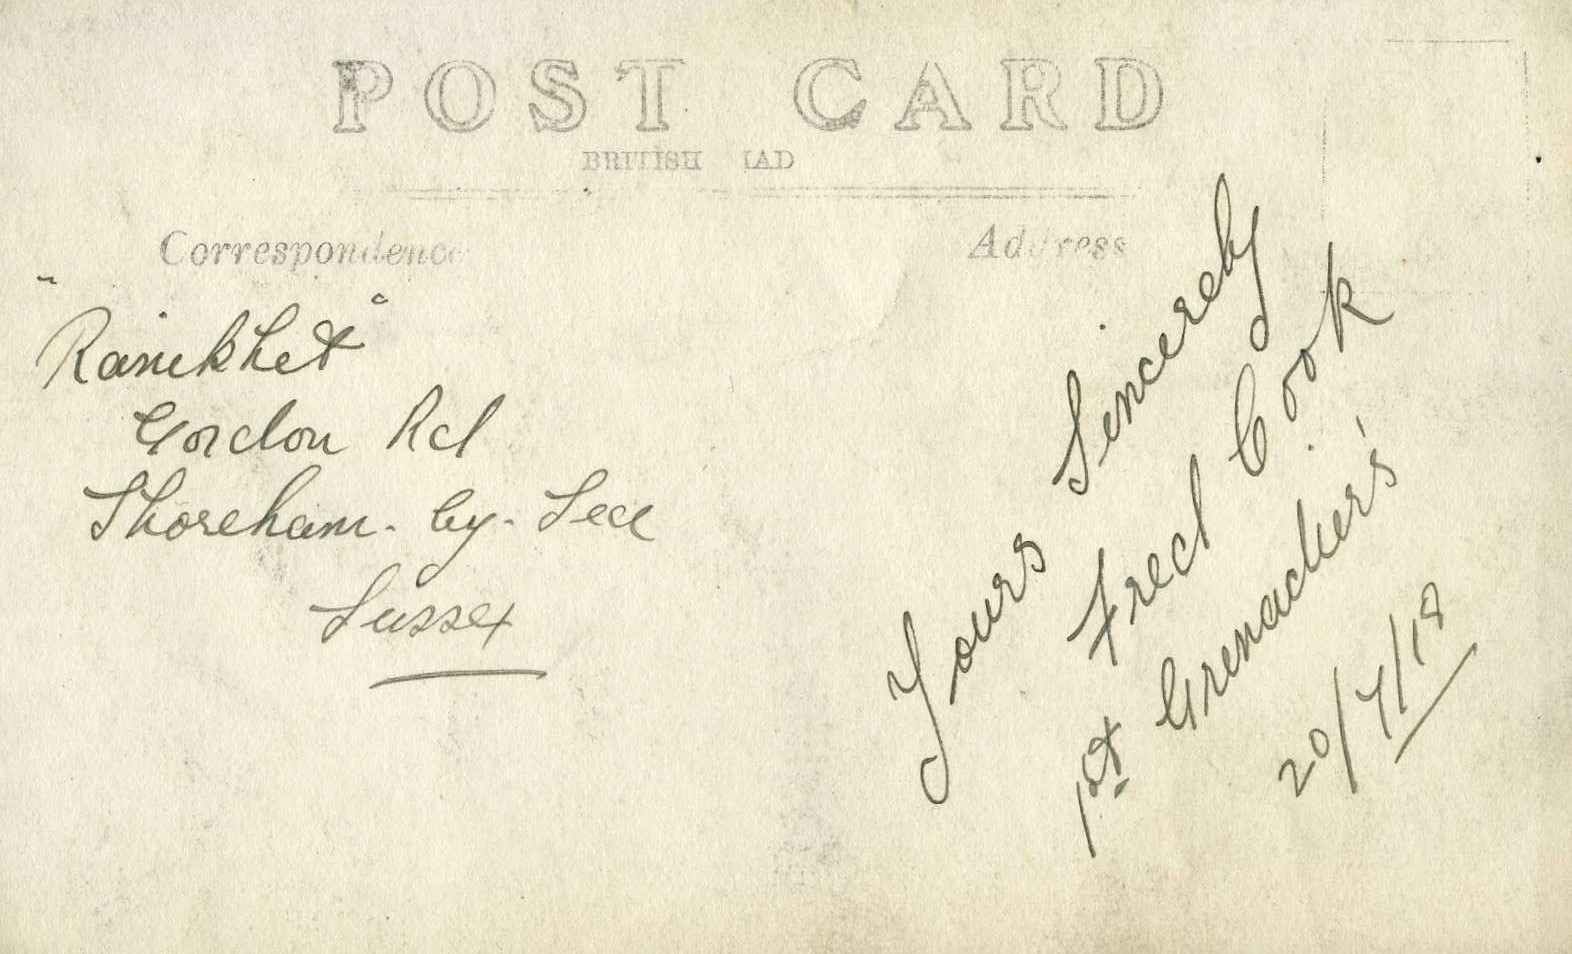 POST CARD
BRITISH
Correspondence
Address
"Ranikhet"
Gordon Rd
Shoreham. by. Sea
Sussex
Yours Sincerely
Fred Cook
1st Grenadier's
20/7/18